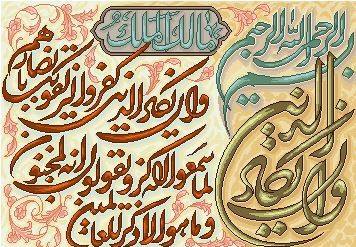 بسم الله الرحمن الرحيم
مالك الملك
وان يكاد الذين كفروا ليزلقونك بابصارهم
لما سمعوا الذكر ويقولون انه لمجنون
وما هو الا ذكر للعالمين
وان يكاد الذين